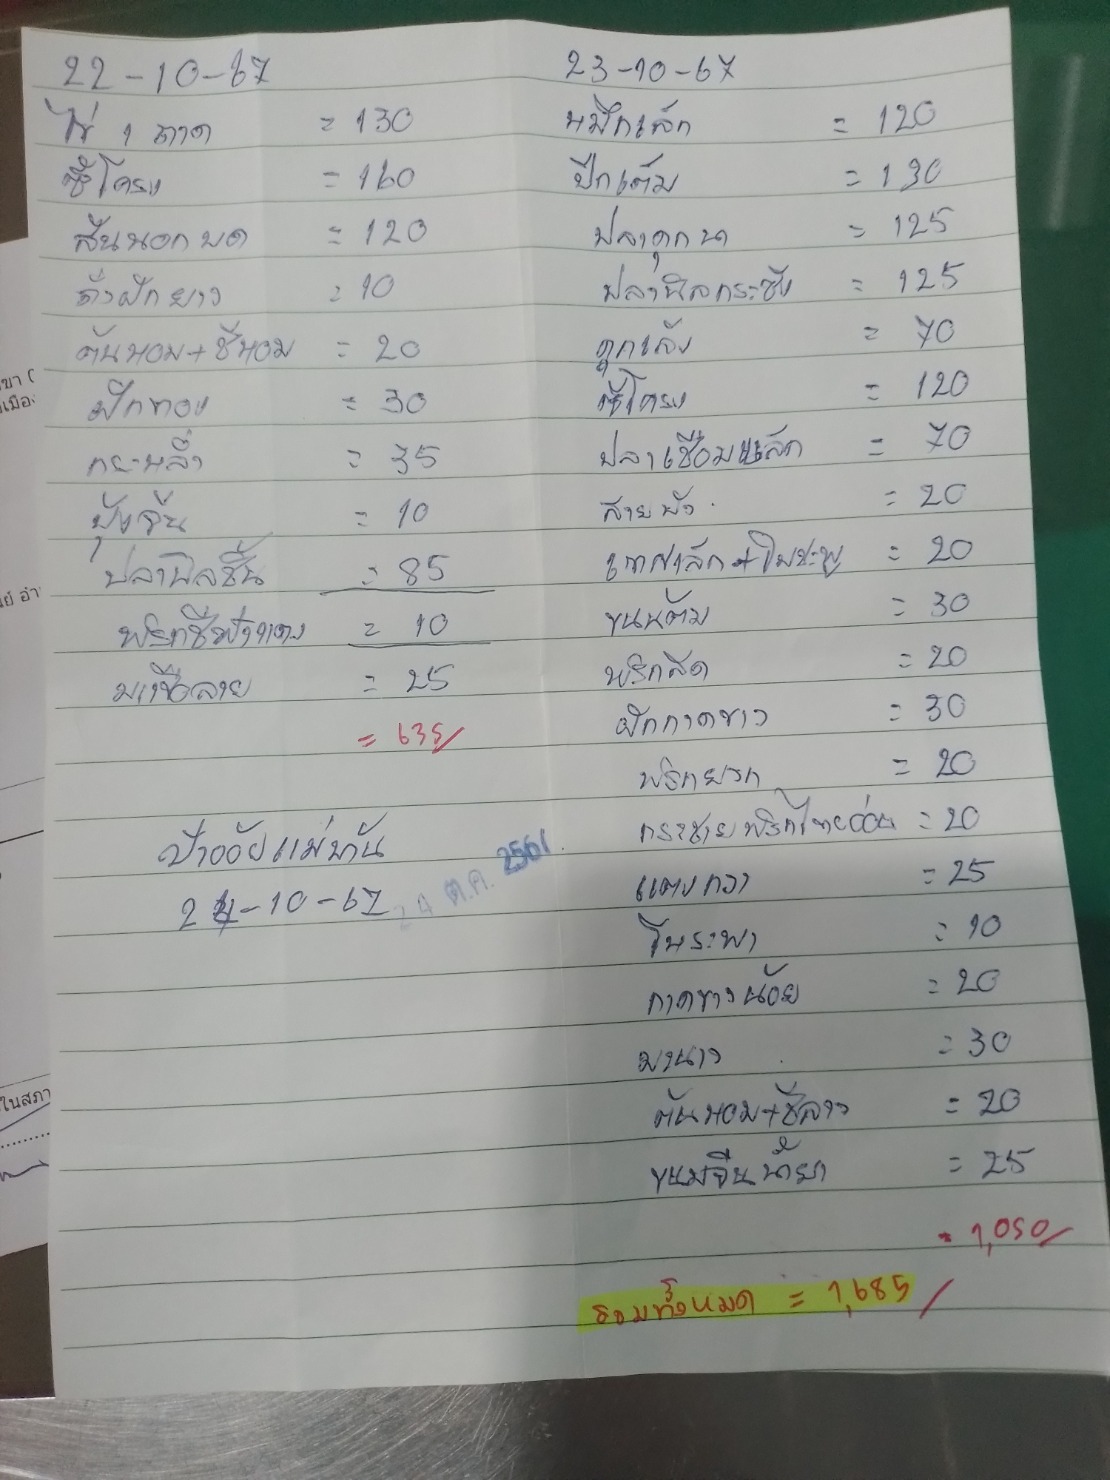 22-10-67
ไข่ 1 ถาด = 130
ซี่โครง = 160
สันนอกบด = 120
ถั่วฝักยาว = 10
ต้นหอม+ชีหอม = 20
ฟักทอง = 30
กระหล่ำ = 35
บุ้งจีน = 10
ปลานิลชิ้น = 85
พริกชี้ฟ้าแดง = 10
มะเขือลาย = 25
= 635/
ป้าอ้อยแม่บ้าน
24-10-67
24 ต.ค. 2561
23-10-67
หมึกเล็ก = 120
ปีกเต็ม = 130
ปลาดุกนา = 125
ปลานิลกระชัง = 125
ดูกเล้ง = 70
ซี่โครง = 120
ปลาเชื่อมเล็ก = 70
สายบัว = 20
เทศเล็ก+ใบชะพู = 20
ขนนต้ม = 30
พริกสด = 20
ผักกาดขาว = 30
พริกยวก = 20
กระชายพริกไทยอ่อน = 20
แตงกวา = 25
โหระพา = 10
กาดขาวน้อย = 20
มะนาว = 30
ต้นหอม+ชีลาว = 20
ขนมจีนน้ำยา = 25
= 1,050/
รวมทั้งหมด = 1,685/